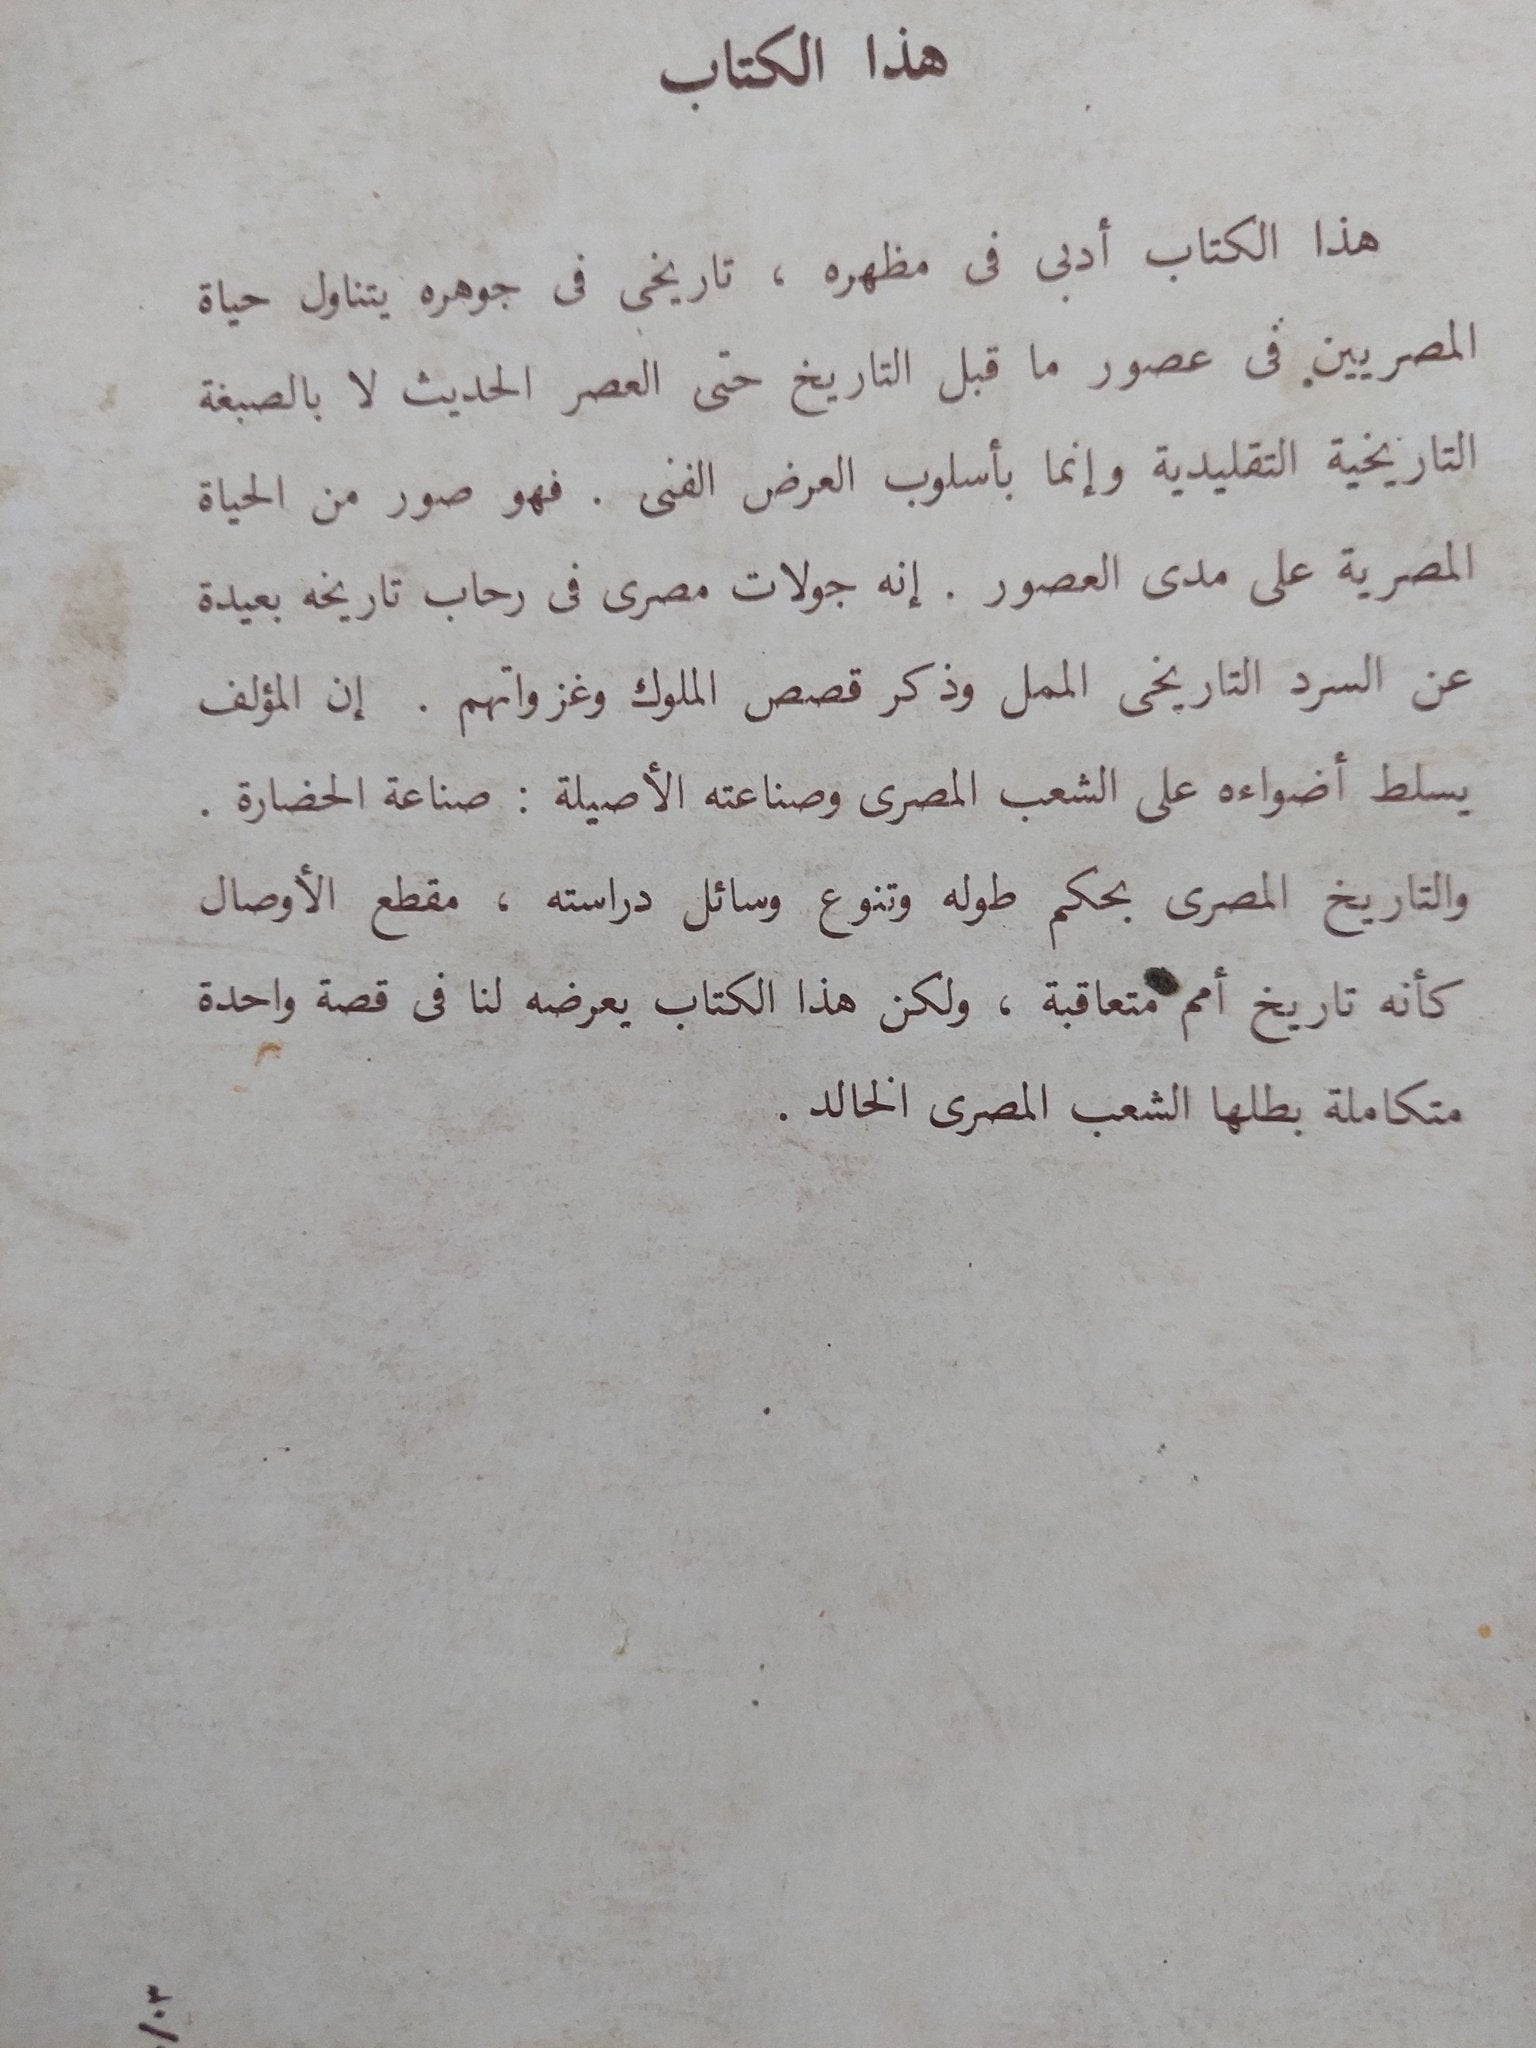 هذا الكتاب
هذا الكتاب أدبى فى مظهره ، تاريخى فى جوهره يتناول حياة
المصريين فى عصور ما قبل التاريخ حتى العصر الحديث لا بالصبغة
التاريخية التقليدية وإنما بأسلوب العرض الفنى . فهو صور من الحياة
المصرية على مدى العصور . إنه جولات مصرى فى رحاب تاريخه بعيدة
عن السرد التاريخى الممل وذكر قصص الملوك وغزواتهم . إن المؤلف
يسلط أضواءه على الشعب المصرى وصناعته الأصيلة : صناعة الحضارة .
والتاريخ المصرى بحكم طوله وتنوع وسائل دراسته ، مقطع الأوصال
كأنه تاريخ أمم متعاقبة ، ولكن هذا الكتاب يعرضه لنا فى قصة واحدة
متكاملة بطلها الشعب المصرى الخالد .